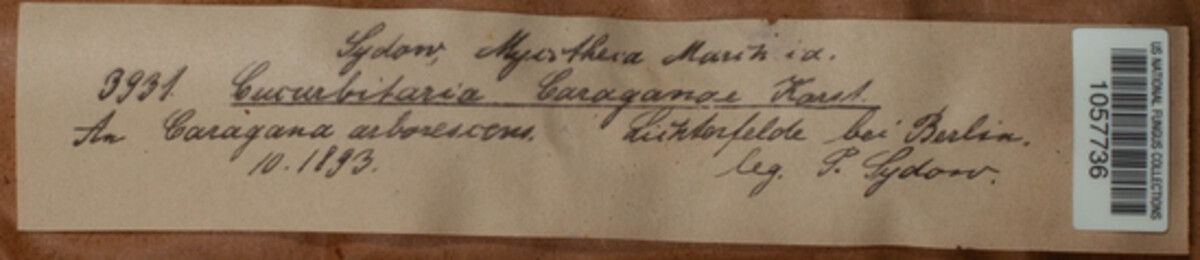 Sydow, Mycotheca March ica.
3931. Cucurbitaria Caraganae Karst.
An Caragana arborescens. Lichterfelde bei Berlin.
10. 1893. leg. P. Sydow.
US NATIONAL FUNGUS COLLECTIONS
1057736